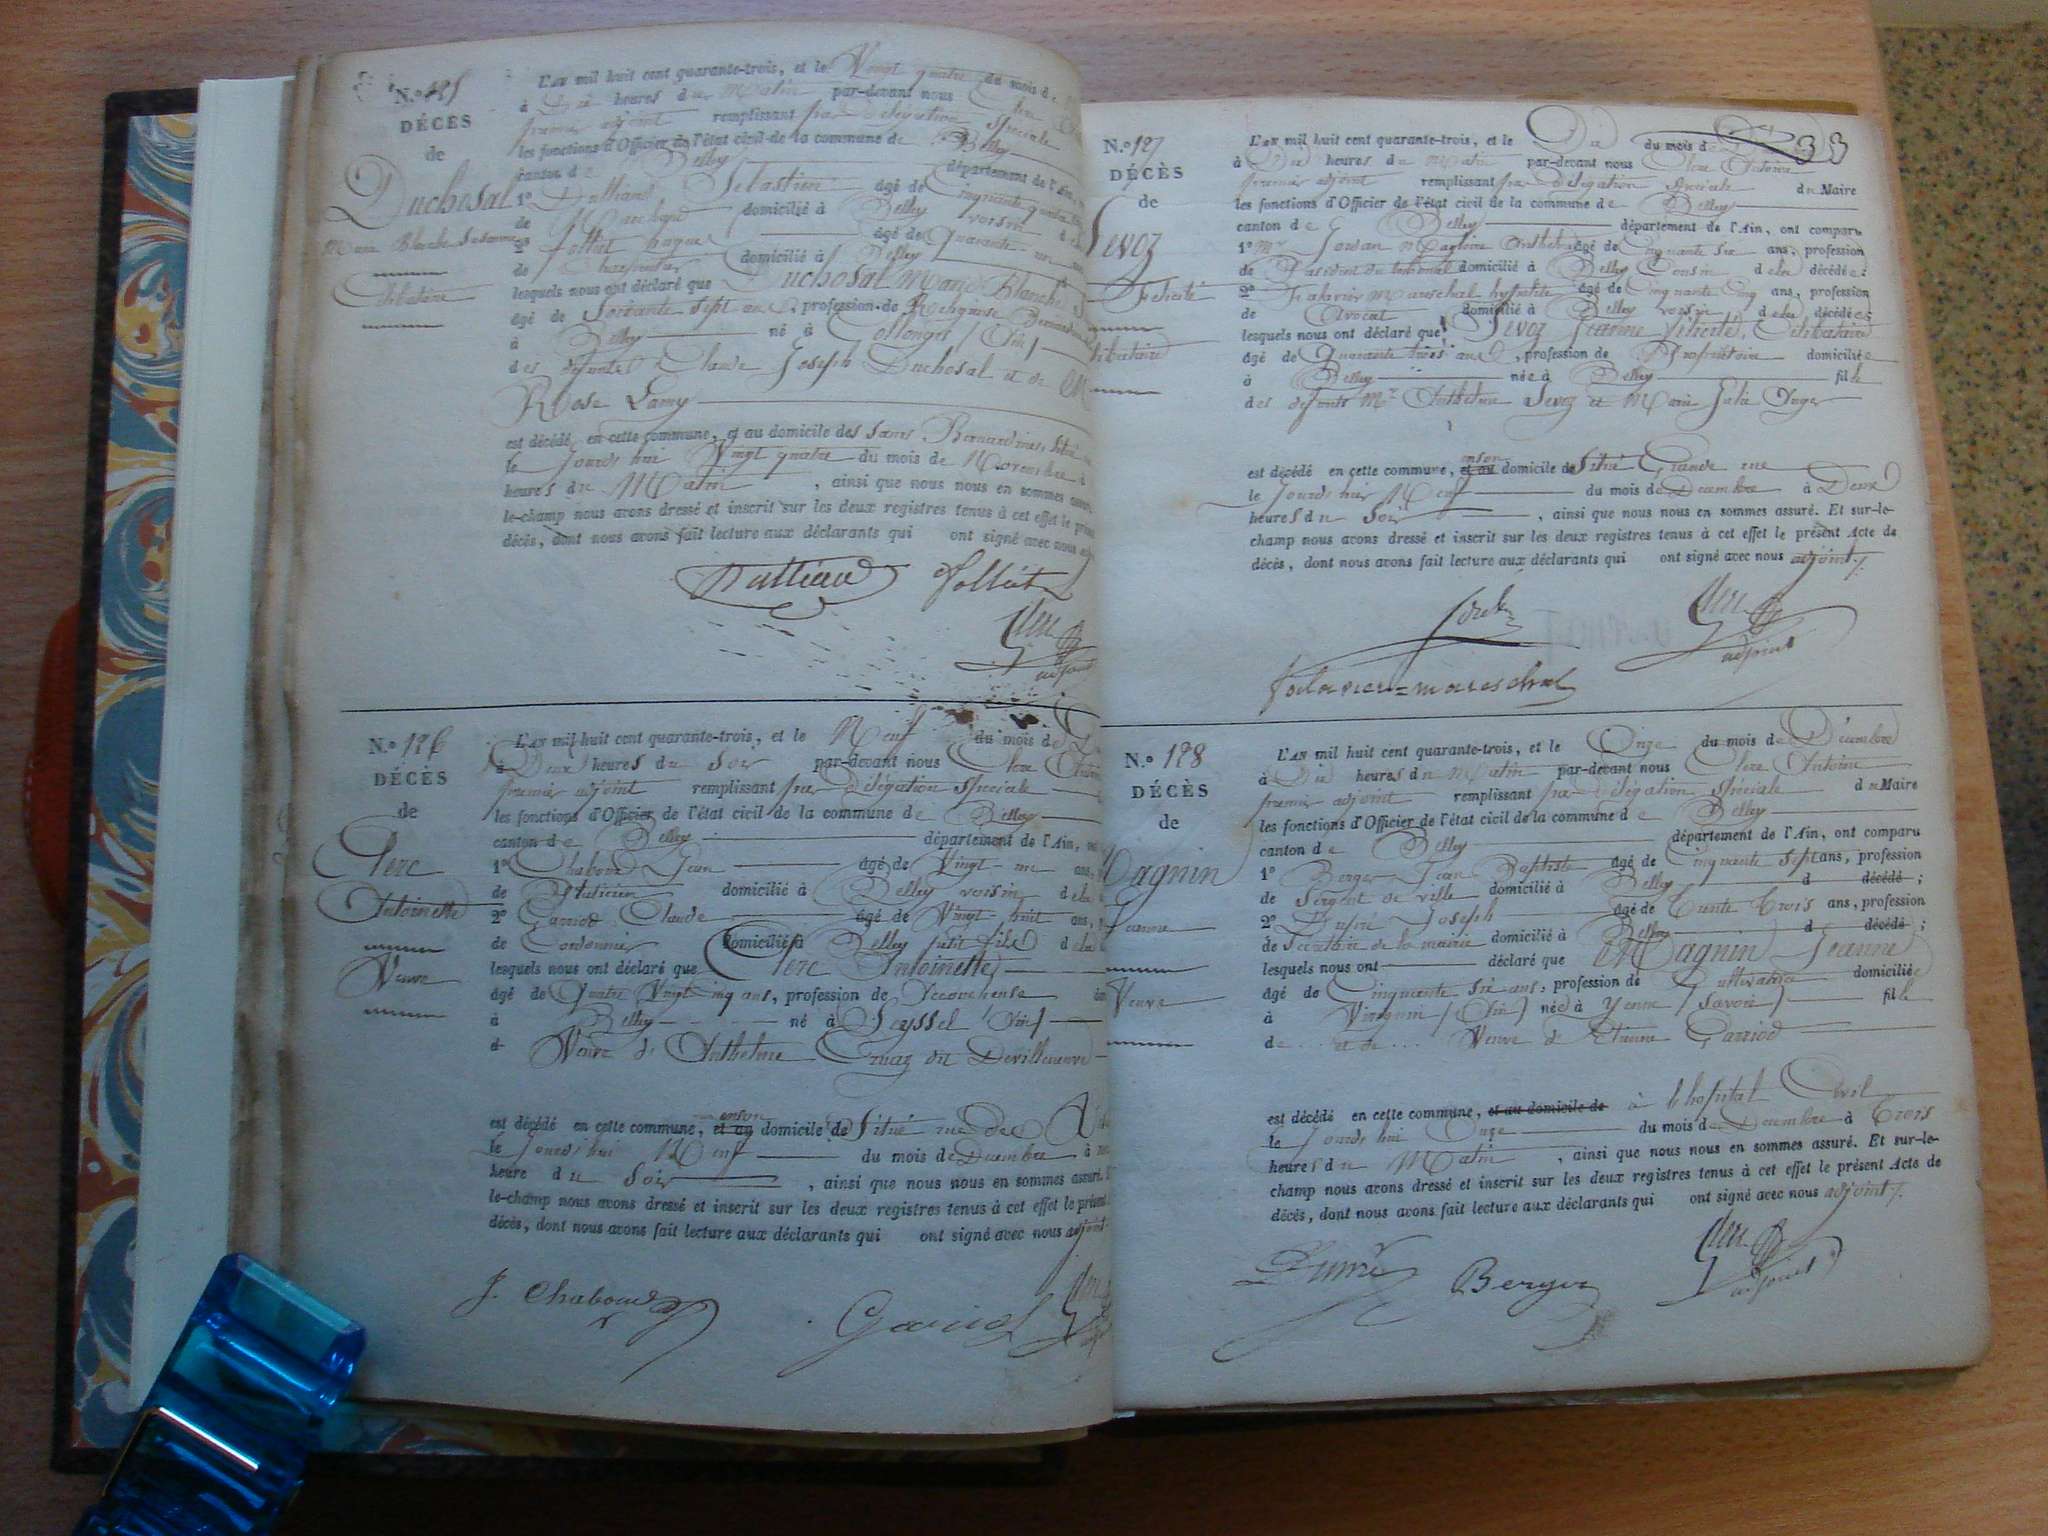 N.º 125
DÉCÈS
de
Duchosal
Marie Blanche Susanne
Célibataire
L'AN mil huit cent quarante-trois, et le Vingt quatre du mois de
à Dix heures du Matin par-devant nous
premier adjoint remplissant par délégation spéciale
les fonctions d'Officier de l'état civil de la commune de Belley
canton de Belley département de l'Ain,
1º Sébastien âgé de Cinquante quatre
de domicilié à Belley voisin
2º âgé de Quarante
de Charpentier domicilié à Belley
lesquels nous ont déclaré que Duchosal Marie Blanche
âgé de Soixante sept ans, profession de Religieuse
à Belley né à Collonges (Ain)
des défunts Claude Joseph Duchosal et de
Rose Lamy
est décédé en cette commune, et au domicile des Sœurs Bernardines, Situé
le jourd'hui Vingt quatre du mois de Novembre à
heures du Matin, ainsi que nous nous en sommes assuré.
le-champ nous avons dressé et inscrit sur les deux registres tenus à cet effet le présent
décès, dont nous avons fait lecture aux déclarants qui ont signé avec nous
Clerc
adjoint
N.º 126
DÉCÈS
de
Clerc
Antoinette
Veuve
L'AN mil huit cent quarante-trois, et le Neuf du mois de
à Deux heures du Soir par-devant nous Clerc Antoine
premier adjoint remplissant par Délégation Spéciale
les fonctions d'Officier de l'état civil de la commune de Belley
canton de Belley département de l'Ain,
1º Chaboud Jean âgé de Vingt-un ans,
de Platrier domicilié à Belley voisin de la
2º Garriod Claude âgé de Vingt huit ans,
de Cordonnier domicilié à Belley petit fils de la
lesquels nous ont déclaré que Clerc Antoinette
âgé de Quatre Vingt cinq ans, profession de
à Belley né à Seyssel (Ain)
et Veuve d'Anthelme dit Devilleneuve
est décédé en cette commune, et au enson domicile de Situé rue de
le jourd'hui Neuf du mois de Décembre à
heure du Soir, ainsi que nous nous en sommes assuré.
le-champ nous avons dressé et inscrit sur les deux registres tenus à cet effet le présent
décès, dont nous avons fait lecture aux déclarants qui ont signé avec nous adjoint
J. Chaboud
Garriod
N.º 127
DÉCÈS
de
Sevoz
Félicité
célibataire
33
L'AN mil huit cent quarante-trois, et le Dix du mois de
à Dix heures du Matin par-devant nous Clerc Antoine
premier adjoint remplissant par délégation Spéciale du Maire
les fonctions d'Officier de l'état civil de la commune de Belley
canton de Belley département de l'Ain, ont comparu
1º Mr Anthelme âgé de Cinquante six ans, profession
de Président du tribunal domicilié à Belley Cousin de la décédée;
2º Falavier Mareschal hypolite âgé de Cinquante Cinq ans, profession
de Avocat domicilié à Belley voisin de la décédée;
lesquels nous ont déclaré que Sevoz Jeanne Félicité, Célibataire
âgé de Quarante trois ans, profession de Propriétaire domiciliée
à Belley née à Belley fille
des défunts Mr Anthelme Sevoz et Marie Julie
est décédé en cette commune, et au enson domicile de Situé Grande rue
le jourd'hier Neuf du mois de Décembre à Deux
heures du Soir, ainsi que nous nous en sommes assuré. Et sur-le-
champ nous avons dressé et inscrit sur les deux registres tenus à cet effet le présent Acte de
décès, dont nous avons fait lecture aux déclarants qui ont signé avec nous adjoint
Clerc
adjoint
Falavier=mareschal
N.º 128
DÉCÈS
de
Magnin
Jeanne
Veuve
L'AN mil huit cent quarante-trois, et le Onze du mois de Décembre
à Dix heures du Matin par-devant nous Clerc Antoine
premier adjoint remplissant par Délégation Spéciale du Maire
les fonctions d'Officier de l'état civil de la commune de Belley
canton de Belley département de l'Ain, ont comparu
1º Berger Jean Baptiste âgé de Cinquante Sept ans, profession
de Sergent de ville domicilié à Belley d décédé;
2º Dupré Joseph âgé de Trente Trois ans, profession
de Secrétaire de la mairie domicilié à Belley d décédé;
lesquels nous ont déclaré que Magnin Jeanne
âgé de Cinquante six ans, profession de Cultivatrice domiciliée
à Virignin (Ain) née à Yenne (Savoie) fille
de ... et de ... Veuve d'Etienne Garriod
est décédé en cette commune, et au domicile de à l'hospital Civil
le jourd'hui Onze du mois de Décembre à Trois
heures du Matin, ainsi que nous nous en sommes assuré. Et sur-le-
champ nous avons dressé et inscrit sur les deux registres tenus à cet effet le présent Acte de
décès, dont nous avons fait lecture aux déclarants qui ont signé avec nous adjoint
Dupré
Berger
Clerc
adjoint